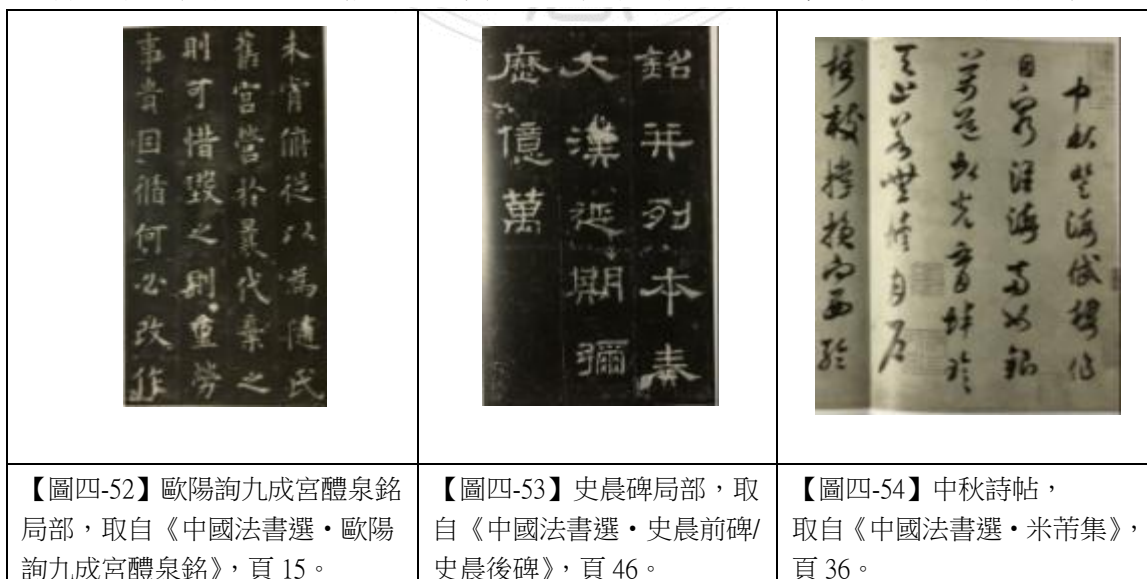 未肯俯從以為隨氏
舊宮營於曩代棄之
則可惜毀之則重勞
事貴因循何必改作
銘并列本奏
大漢延期彌
歷億萬
中秋登海岱樓作
目窮淮海兩如銀
萬道虹光育蚌珍
天上若無修月戶
桂枝撐損向西輪
【圖四-52】歐陽詢九成宮醴泉銘
局部，取自《中國法書選‧歐陽
詢九成宮醴泉銘》，頁 15。
【圖四-53】史晨碑局部，取
自《中國法書選‧史晨前碑/
史晨後碑》，頁 46。
【圖四-54】中秋詩帖，
取自《中國法書選‧米芾集》，
頁 36。